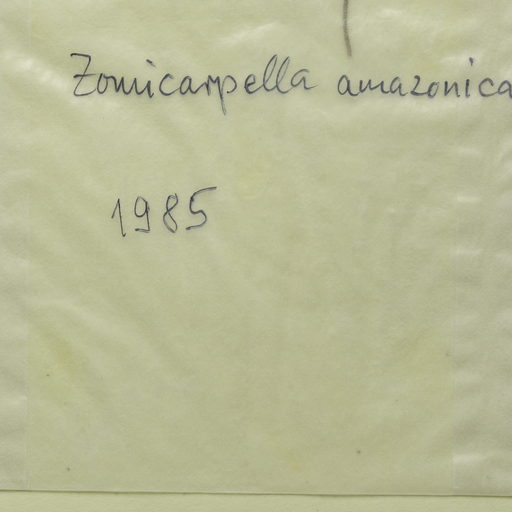 Zomicarpella amazonica
1985